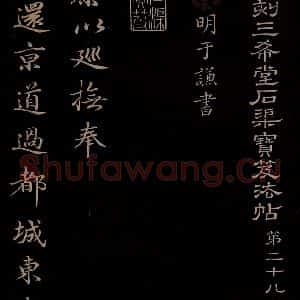 刻三希堂石渠寶笈法帖 第二十八
明于謙書
以廵撫奉
還京道過都城東
Shufawang.Cn